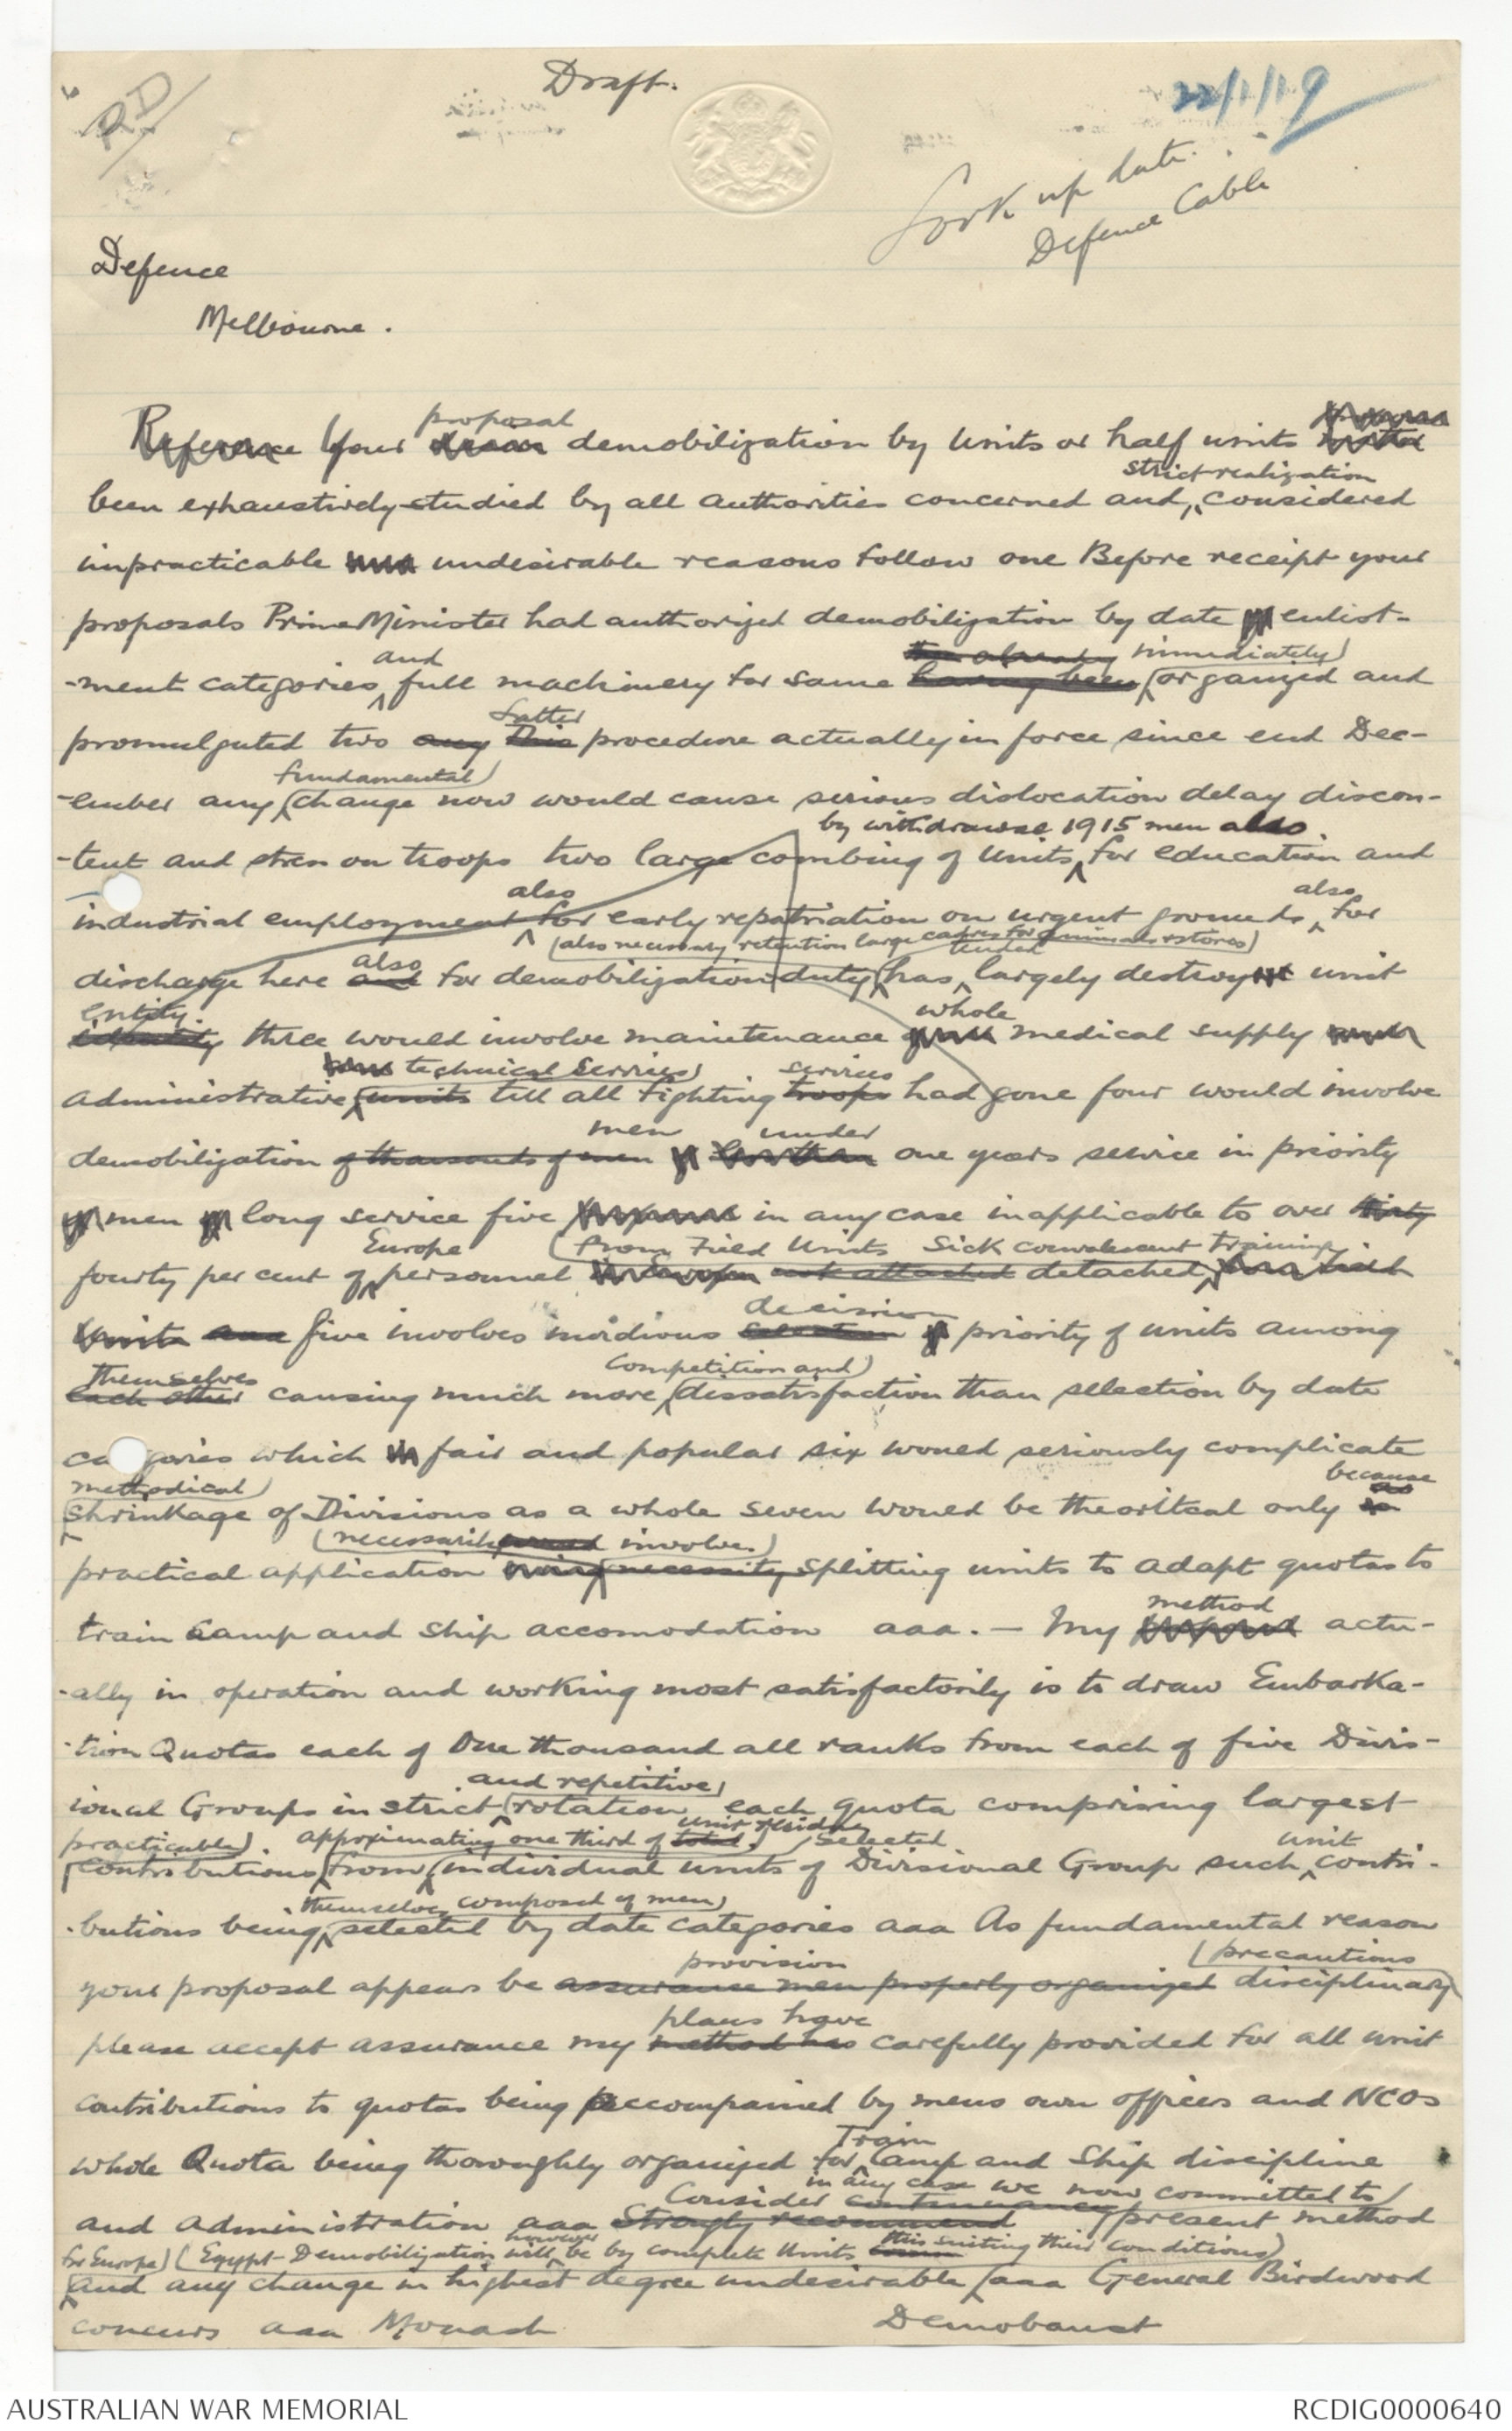 RD
Draft.
22/1/19
Look up date.
Defence Cable
Defence
Melbourne.
proposal
Reference Your demobilization by Units or half units
strict realization
been exhaustively studied by all authorities concerned and, considered
impracticable undesirable reasons follow one Before receipt your
proposals Prime Minister had authorized demobilization by date enlist-
and immediately
-ment categories full machinery for same having been organized and
latter
promulgated two any this procedure actually in force since end Dec-
fundamental
-ember any change now would cause serious dislocation delay discon-
by withdrawal 1915 men also.
-tent and stress on troops two large combing of Units for education and
also also
industrial employment for early repatriation on urgent grounds for
(also necessary retention large cadres for animals & stores)
also tended
discharge here and for demobilization duty has largely destroy unit
entity. whole
identity three would involve maintenance medical supply
technical services services
administrative units till all fighting troops had gone four would involve
men under
demobilization of thousands of men less than one years service in priority
men long service five in any case inapplicable to over thirty
Europe (from Field Units Sick convalescent training
fourty per cent of personnel not attached detached
decision
Units and five involves invidious selection priority of units among
themselves competition and)
each other causing much more dissatisfaction than selection by date
ca gories which fair and popular six would seriously complicate
methodical) because
shrinkage of Divisions as a whole seven would be theoritcal only as
(necessarily involve.)
practical application owing necessity splitting units to adapt quotas to
method
train camp and ship accomodation aaa. - My actu-
-ally in operation and working most satisfactorily is to draw Embarka-
-tion Quotas each of One thousand all ranks from each of five Divis-
and repetitive)
ional Groups in strict rotation each quota comprising largest
practicable) approximating one third of total unit residue) selected unit
contributions from individual units of Divisional Group such contri-
themselves composed of men)
-butions being selected by date categories aaa As fundamental reason
provision (precautions
your proposal appears be assurance men properly organized disciplinary
plans have
please accept assurance my method has carefully provided for all unit
contributions to quotas being accompanied by mens own officers and NCOs
Train
whole Quota being thoroughly organized for Camp and Ship discipline
in any case we now committed to)
Consider continuancy
and administration aaa Strongly recommend present method
for Europe) (Egypt Demobilization will however be by complete Units this suiting their conditions)
and any change in highest degree undesirable aaa General Birdwood
concurs aaa Monash Demobaust
AUSTRALIAN WAR MEMORIAL
RCDIG0000640